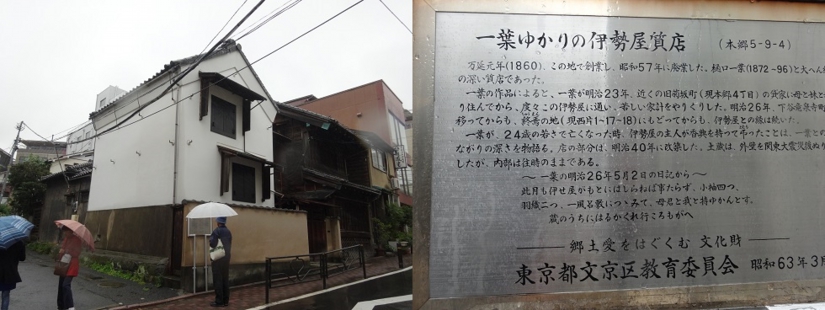 一葉ゆかりの伊勢屋質店 (本郷5-9-4)
万延元年(1860)、この地で創業し、昭和57年に廃業した。樋口一葉(1872~96)と大へん
の深い質店であった。
一葉の作品によると、一葉が明治23年、近くの旧菊坂町(現本郷4丁目)の貸家に母と妹と
り住んでから、度々この伊勢屋に通い、苦しい家計をやりくりした。明治26年、下谷竜泉寺町
移ってからも、終焉の地(現西片1-17-18)にもどってからも、伊勢屋との縁は続いた。
一葉が、24歳の若さで亡くなった時、伊勢屋の主人が香典を持って
ったことは、一葉と
ながりの深さを物語る。店の部分は、明治40年に改築した。土蔵は、外壁を関東大震災後ぬり
したが、内部は往時のままである。
~一葉の明治26年5月2日の日記から~
此月も伊せ屋がもとにはしらねば事たらず、小袖四つ、
羽織二つ、一風呂敷につゝみて、母君と我と持ゆかんとす。
蔵のうちにはるかくれ行ころもがへ
郷土愛をはぐくむ 文化財
東京都文京区教育委員会 昭和63年3